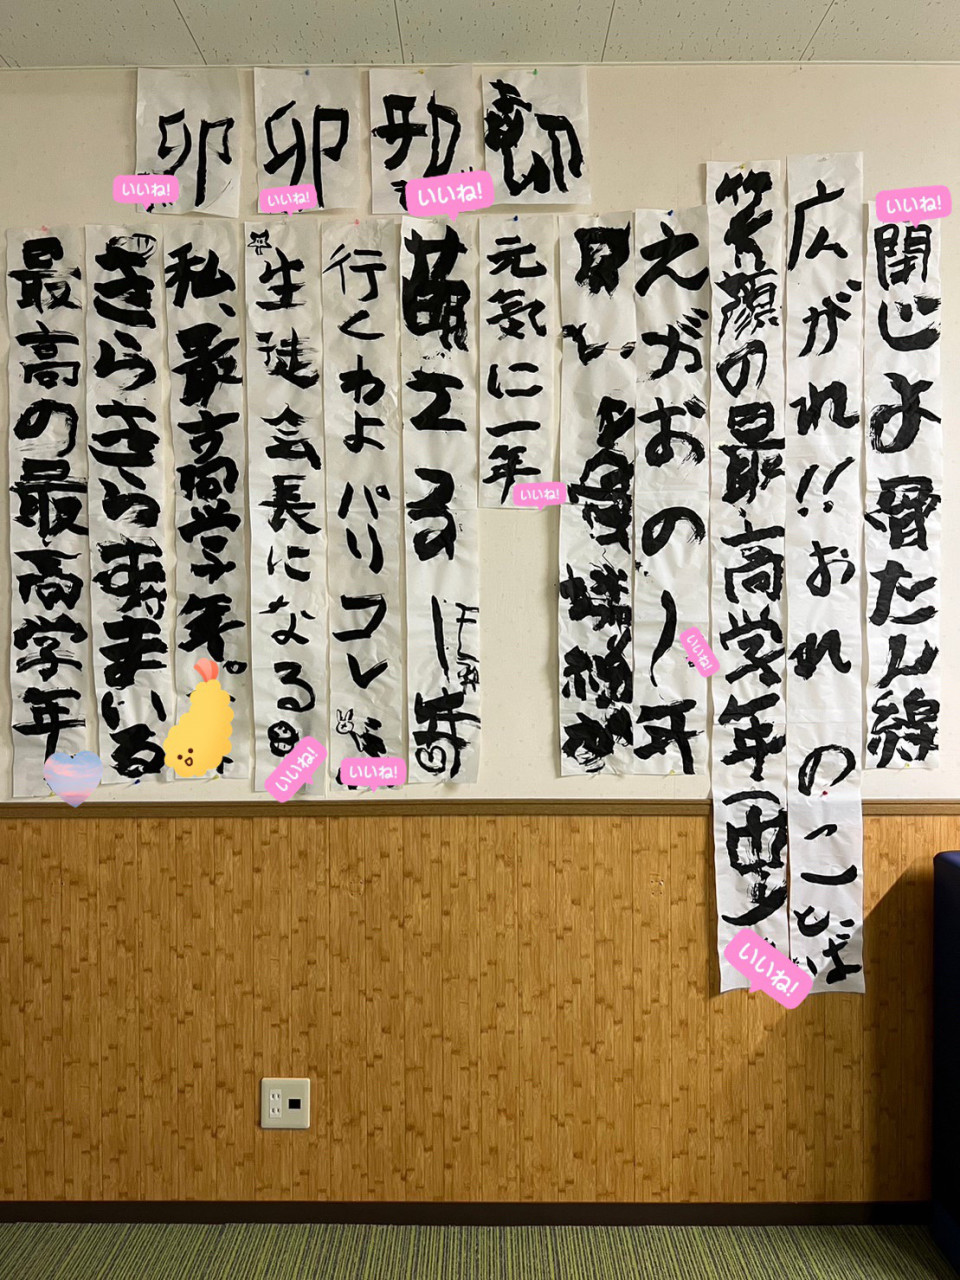 卯
卯
閉じよ骨たん線
広がれ!!おれのことば
笑顔の最高学年
えがおの一年
元気に一年
萌エる
行くわよパリコレ
生徒会長になる
私、最高学年。
きらきらすまいる
最高の最高学年
いいね!
いいね!
いいね!
いいね!
いいね!
いいね!
いいね!
いいね!
いいね!